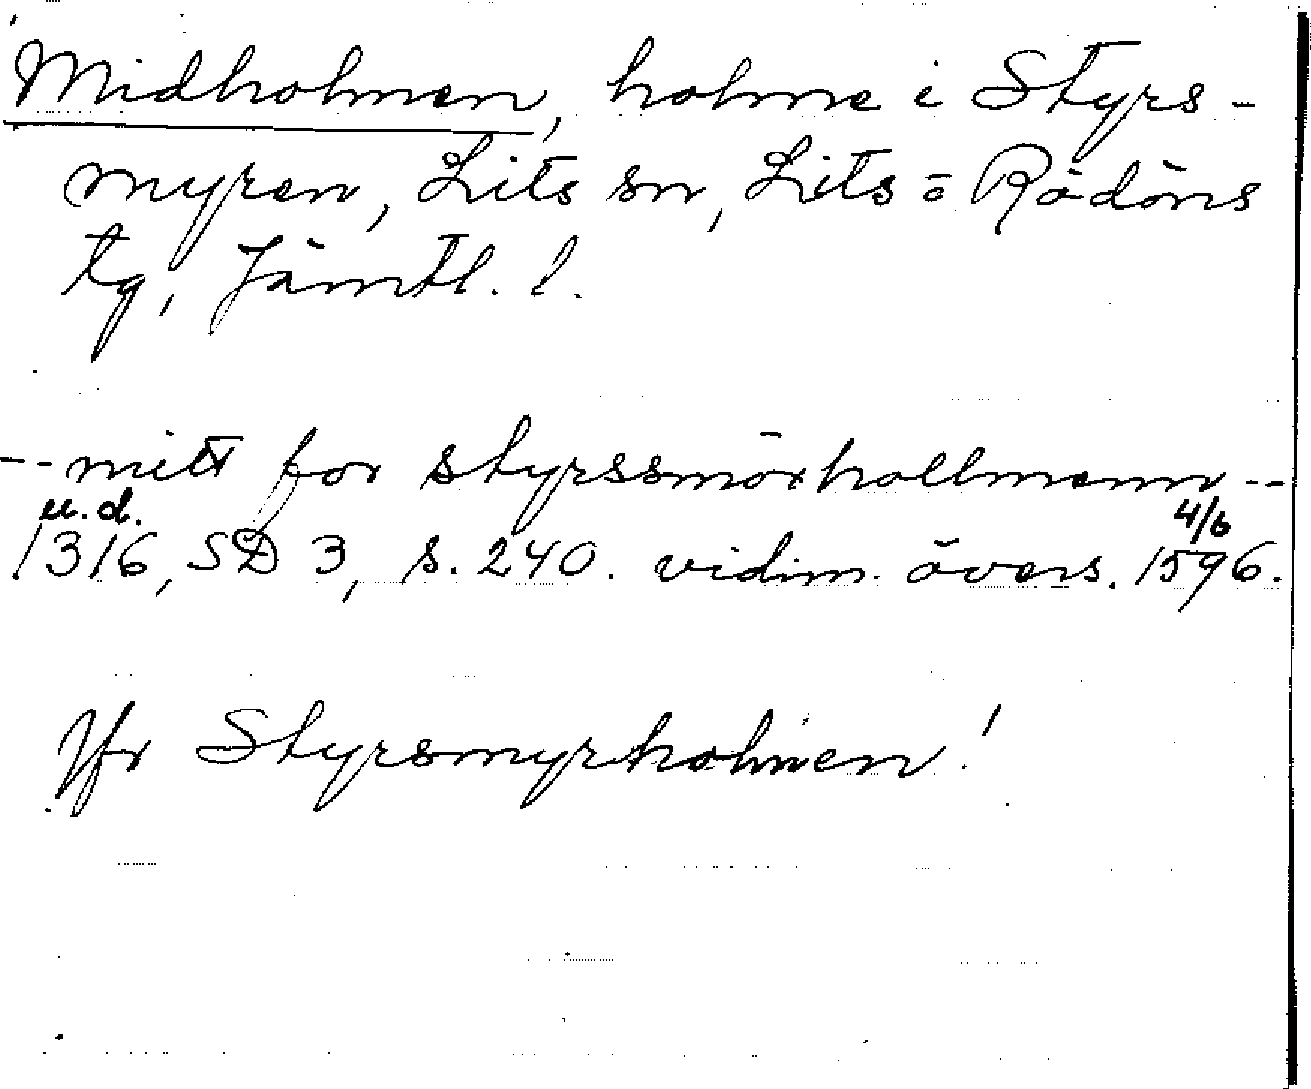 Midholmen, holme i Styrs-
myren, Lits sn, Lits = Rödöns
tg, Jämtl. l.
-- mitt for styrssmörhollmenn --
u.d. 4/6
1316, SD 3, s. 240. vidim. övers. 1596.
Jfr Styrsmyrholmen!